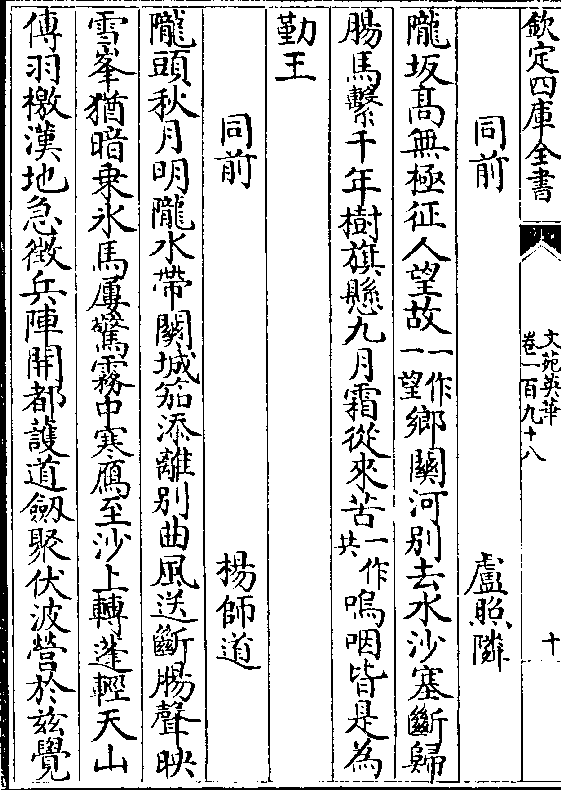 欽定四庫全書
文苑英華
卷一百九十八
十
同前
盧照隣
隴坂髙無極征人望故一作一望鄉關河别去水沙塞斷歸
腸馬繫千年樹旗懸九月霜從來苦一作共嗚咽皆是為
勤王
同前
楊師道
隴頭秋月明隴水帶關城笳添離别曲風送斷腸聲映
雪峯猶暗乗氷馬屢驚霧中寒鴈至沙上轉蓬輕天山
傳羽檄漢地急徴兵陣開都護道劔聚伏波營於兹覺